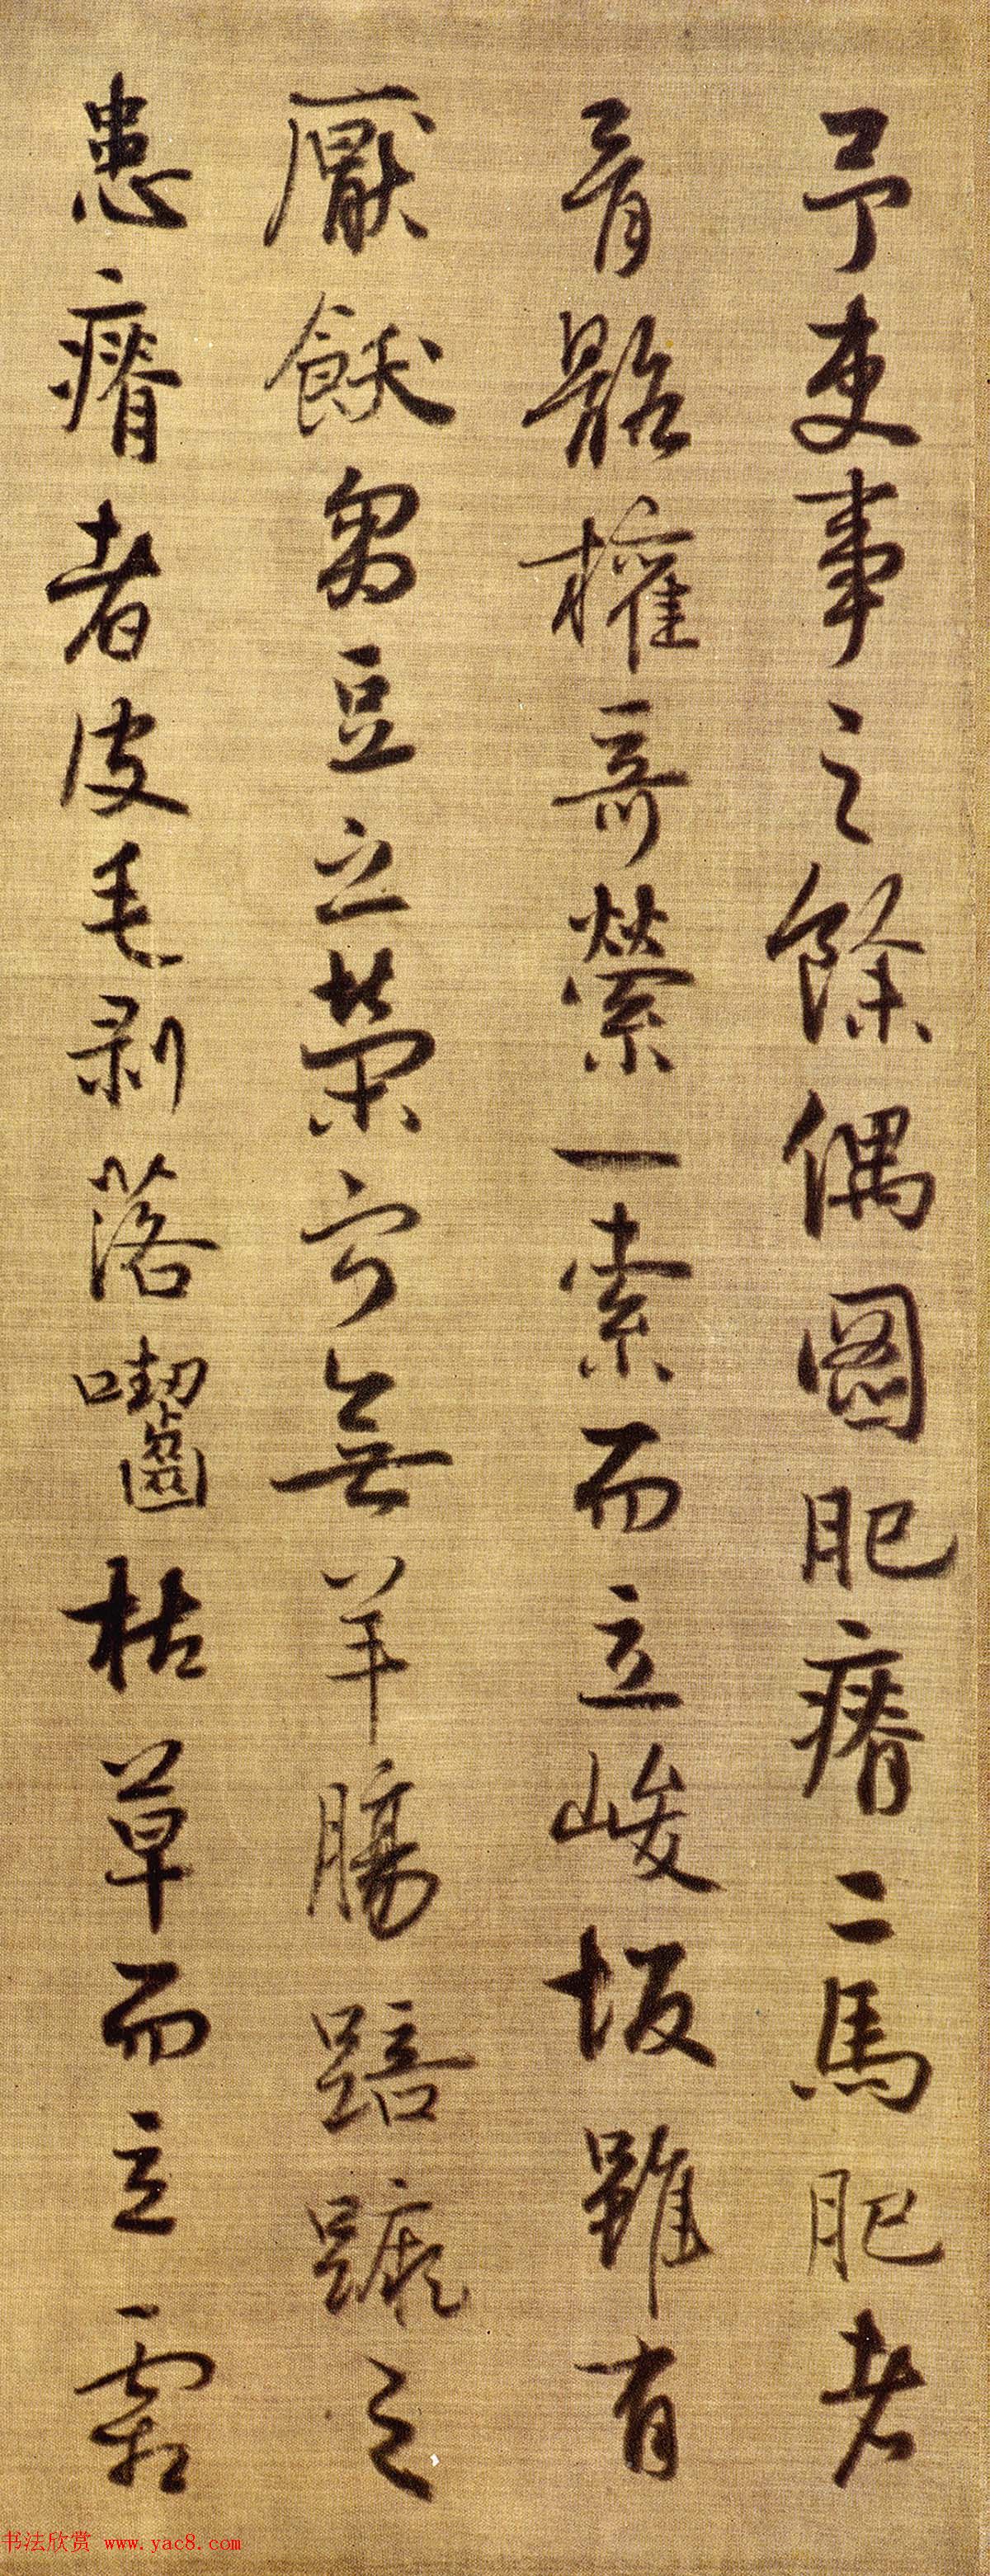 予吏事之餘偶圖肥瘠二馬肥者
骨骼權竒縈一索而立峻坂雖有
厭飫芻豆之榮寧無羊腸踣蹶之
患瘠者皮毛剥落囓枯草而立霜
书法欣赏 www.yac8.com